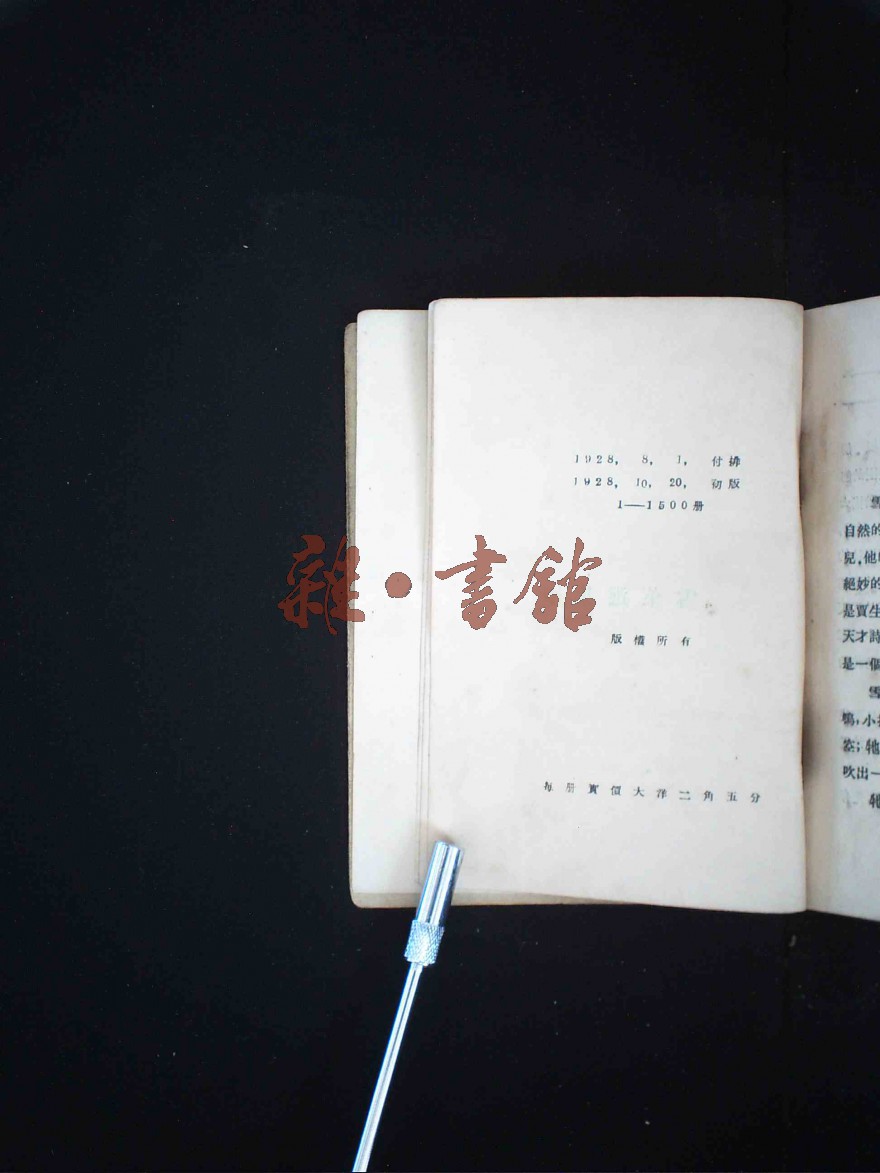 1928, 8, 1, 付排
1928, 10, 20, 初版
1——1500册
雜·書館
版權所有
每册實價大洋二角五分
自然的
兒,他
絕妙的
是賈生
天才詩
是一個
鴞,小
吹出一